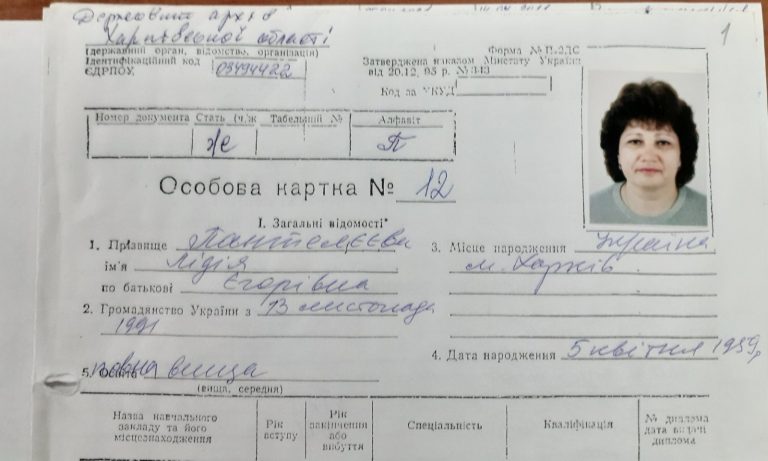 Державний архів
Харківської області
1
(державний орган, відомство, організація)
Форма № П-2ДС
Ідентифікаційний код
ЄДРПОУ 03494422
Затверджена наказом Мінстату України
від 20.12. 95 р. № 343
Код за УКУД
Номер документа Стать (ч/ж Табельний № Алфавіт
ж П
Особова картка № 12
I. Загальні відомості*
1. Прізвище Пантелєєва
ім'я Лідія
по батькові Єгорівна
2. Громадянство України з 13 листопада
1991
3. Місце народження Україна
м. Харків
4. Дата народження 5 квітня 1959 р
5. Освіта повна вища
(вища, середня)
Назва навчального закладу та його місцезнаходження
Рік вступу
Рік закінчення або вибуття
Спеціальність
Кваліфікація
№ диплома дата видачі диплома